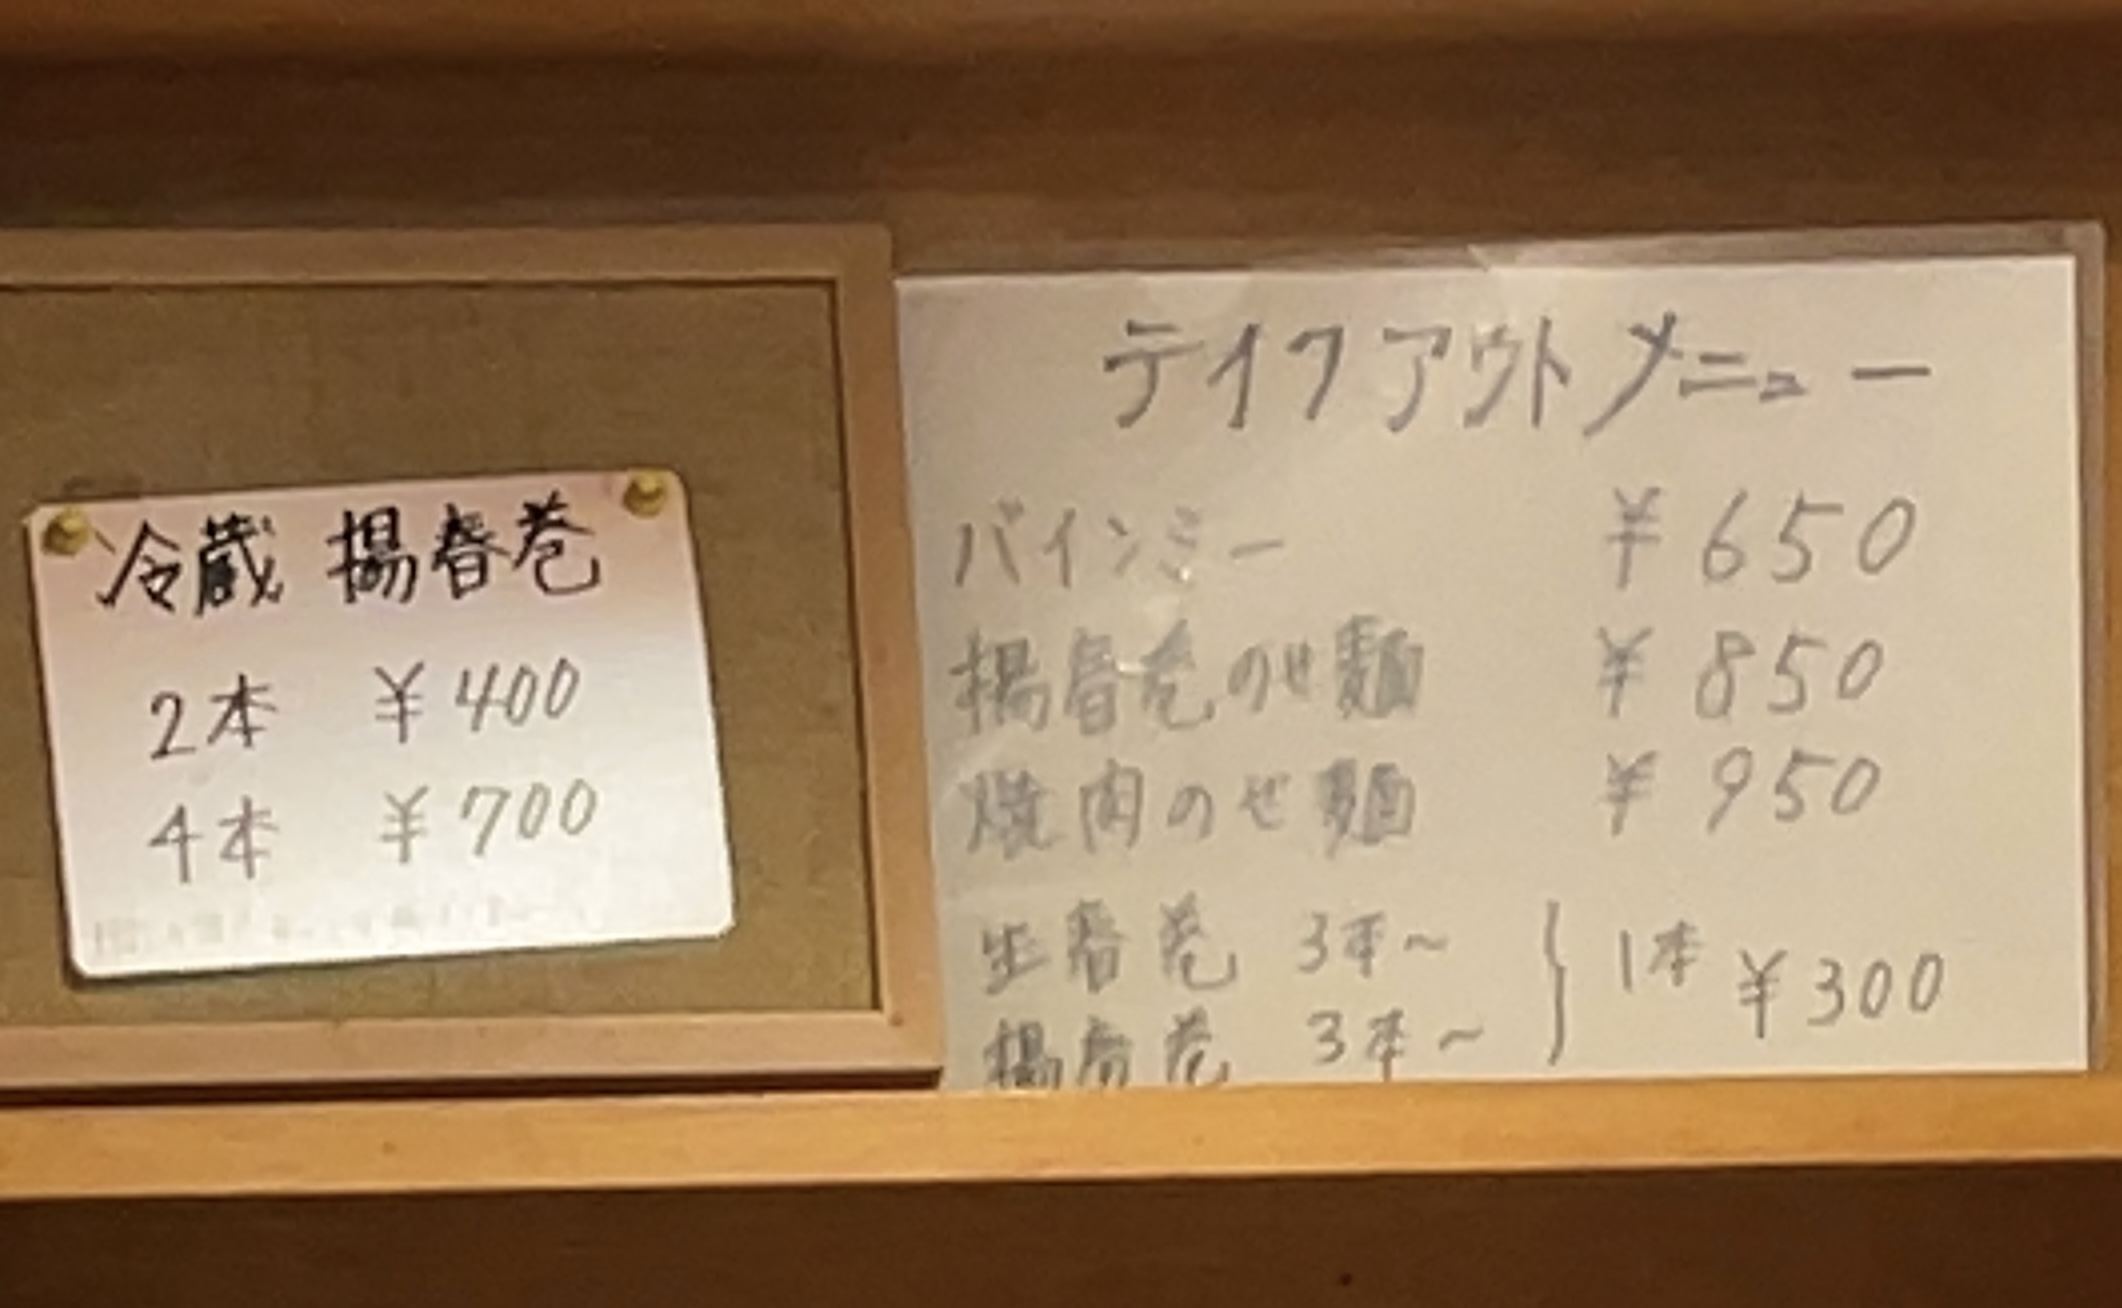 冷蔵 揚春巻
2本 ¥400
4本 ¥700
テイクアウトメニュー
バインミー ¥650
揚春巻のせ麺 ¥850
焼肉のせ麺 ¥950
生春巻 3本~
揚春巻 3本~
1本 ¥300